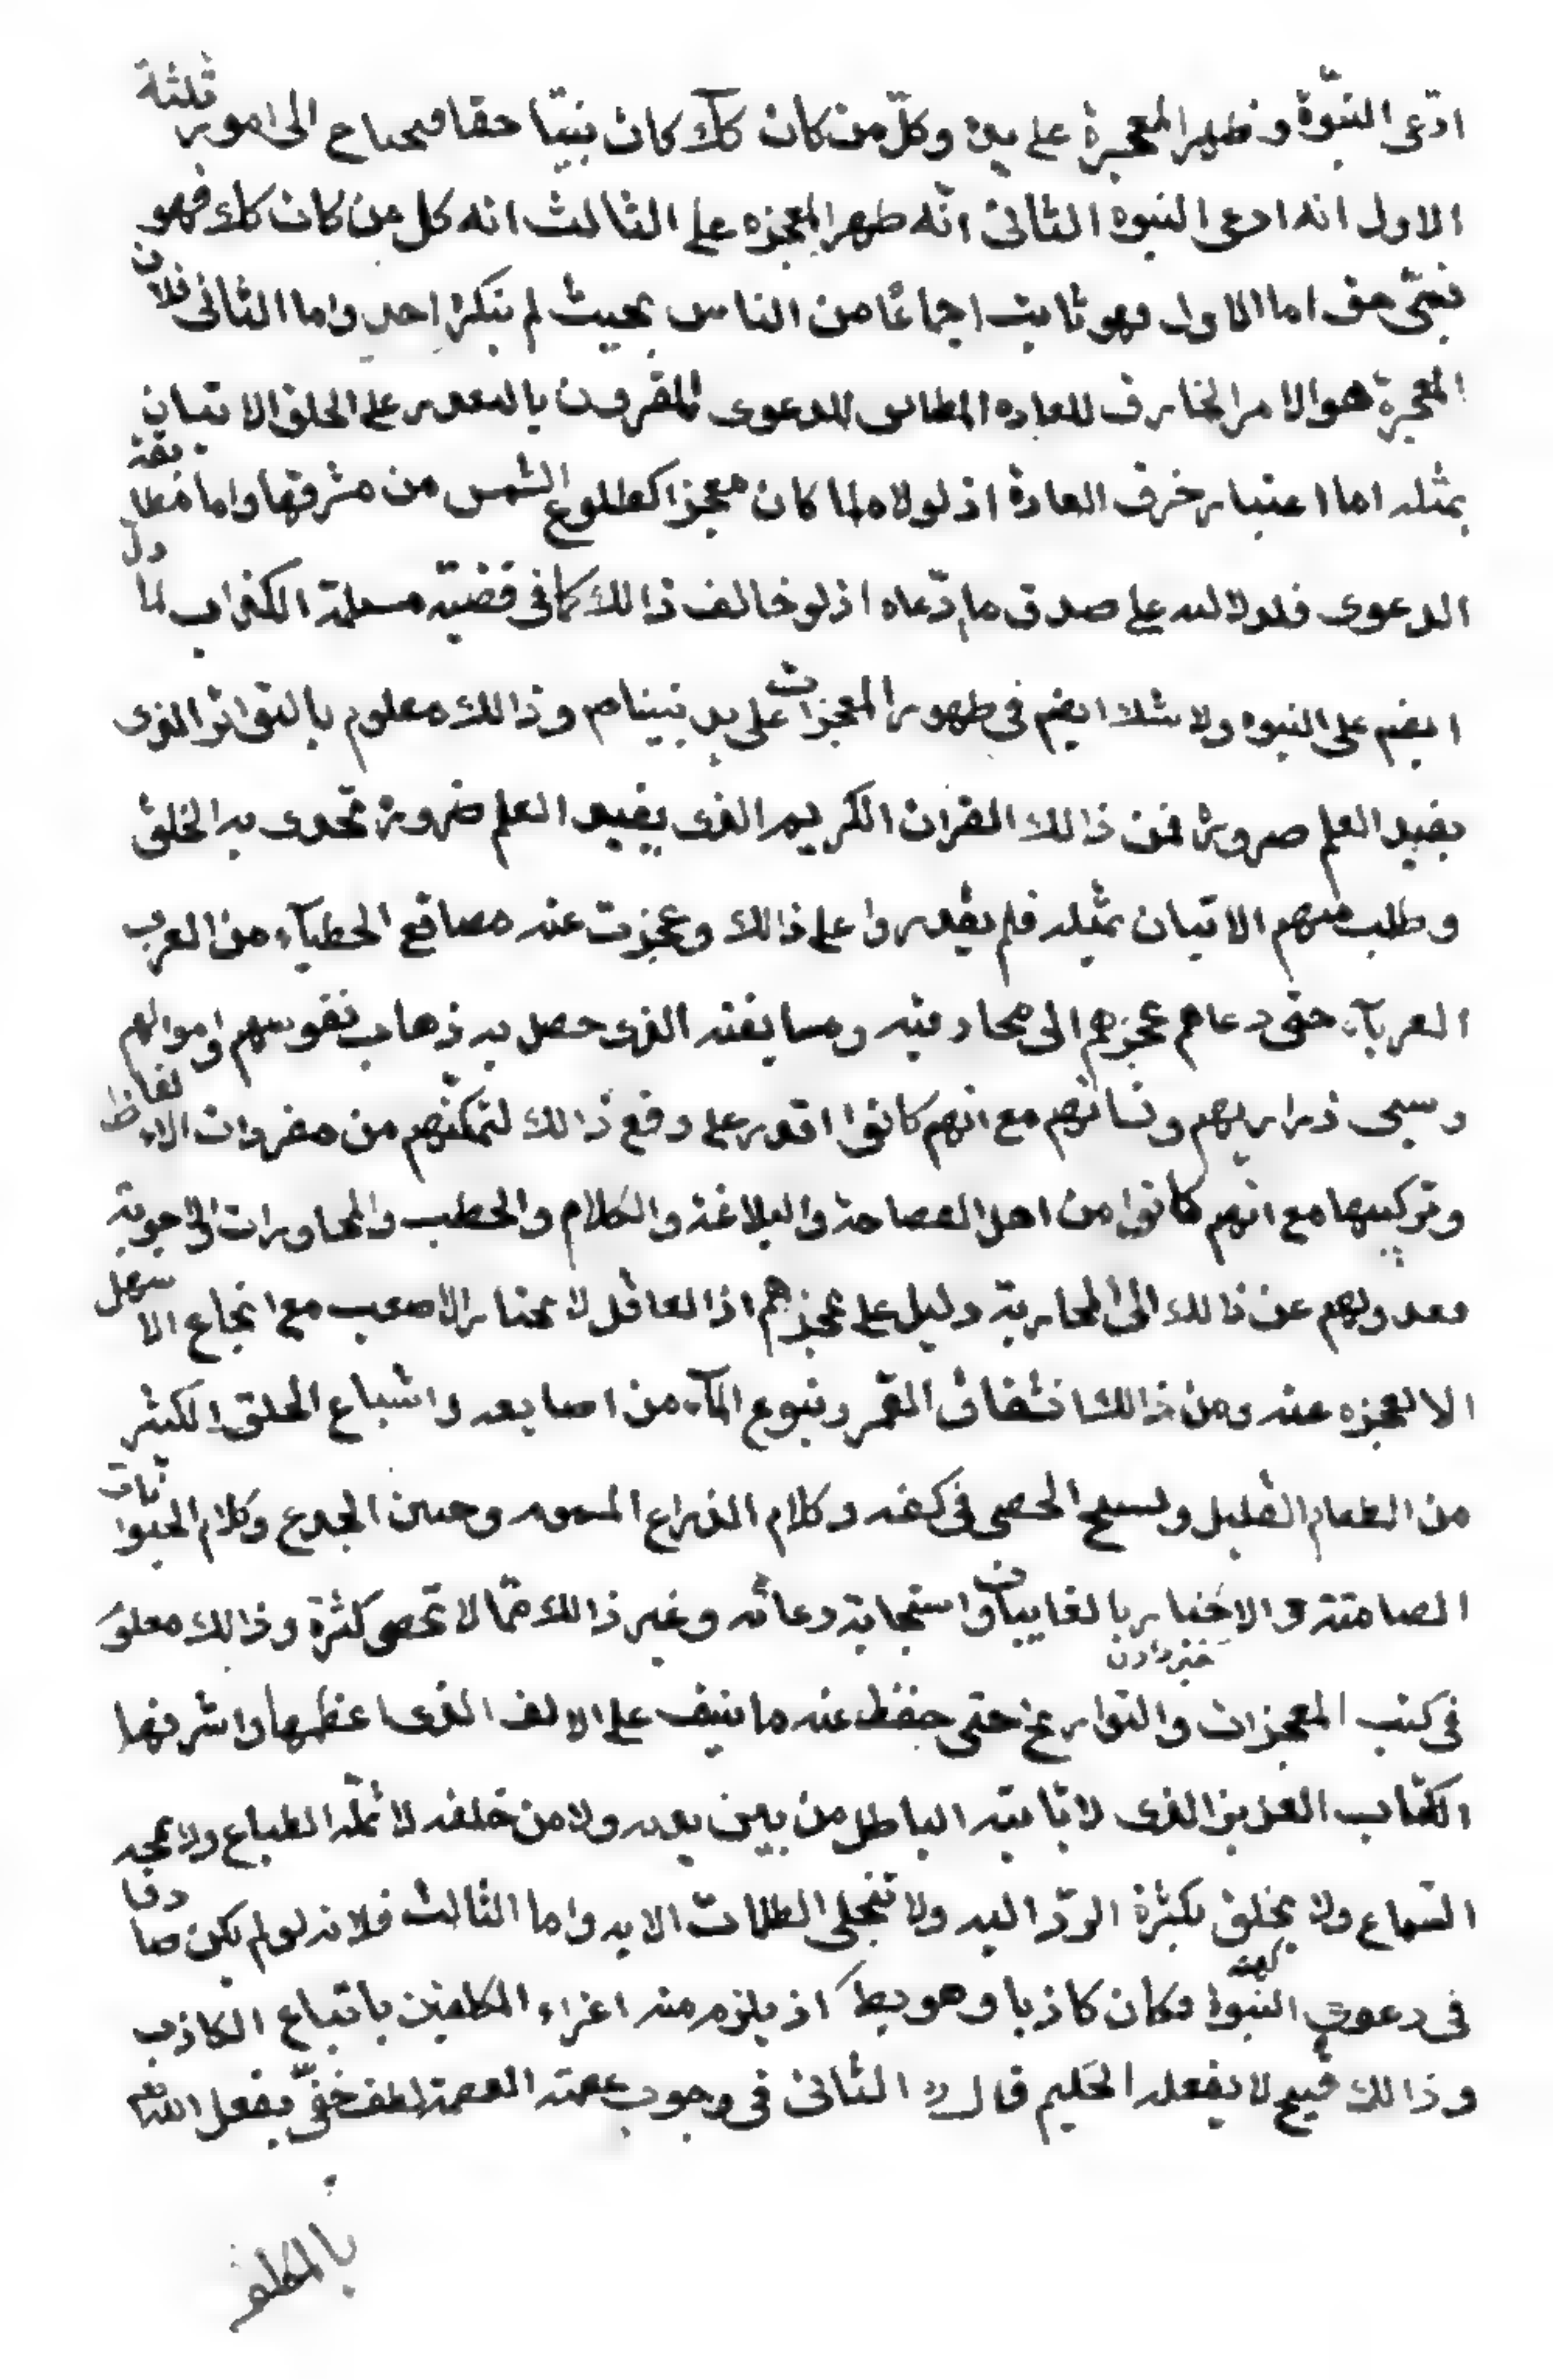 ادّعى النبوّة و ظهر المعجزة على يده وكلّ من كان كك كان نبيّا حقا فيحتاج الى امور ثلثة
الاول انه ادعى النبوه الثانى انّه ظهر المعجزه على الثالث انه كل من كان كك فهو
نبىّ حق اما الاول فهو ثابت اجماعًا من الناس بحيث لم ينكره احد واما الثانى فلان
المعجزة هو الامر الخارق للعاده المطابق للدعوى المقرون بالتعذر على الخلق الاتيان
بمثله اما اعتبار خرق العادة اذ لولاه لما كان معجزا كطلوع الشمس من مشرقها واما مطابقة
الدعوى فلدلالته على صدق ما ادّعاه اذ لو خالف ذالك كما فى قضيّه مسيلمة الكذاب لما دل
ايضم على النبوه ولا شك ايضم فى ظهور المعجزات على يد نبينا ص وذالك معلوم بالتواتر الذى
يفيد العلم ضرورة فمن ذالك القران الكريم الذى يفيد العلم ضرورة تحدى به الخلق
وطلب منهم الاتيان بمثله فلم يقدروا على ذالك وعجزت عنه مصاقع الخطبآء من العرب
العربآء حتى دعاهم عجزهم الى محاربته ومسايفته الذى حصل به ذهاب نفوسهم واموالهم
وسبى ذراريهم ونسائهم مع انهم كانوا اقدر على دفع ذالك لتمكّنهم من مفردات الالفاظ
وتركيبها مع انهم كانوا من اهل الفصاحة والبلاغة والكلام والخطب والمحاورات والاجوبة
فعدولهم عن ذالك الى المحاربة دليل على عجزهم اذ العاقل لا يختار الاصعب مع انجاع الاسهل
الا لعجزه عنه ومن ذالك انشقاق القمر ونبوع المآء من اصابعه واشباع الخلق الكثير
من الطعام القليل وتسبيح الحصى فى كفه وكلام الذراع المسموم وحنين الجذع وكلام الحيوانات
الصامتة والاخبار بالغايبات واستجابة دعائه وغير ذالك ممّا لا تحصى كثرة وذالك معلوم
خبر دادن
فى كتب المعجزات والتواريخ حتى حفظ عنه ما ينيف على الالف الذى اعظمها واشرفها
الكتاب العزيز الذى لا ياتيه الباطل من بين يديه ولا من خلفه لا تملّه الطباع ولا تمجه
السّماع ولا يخلق بكثرة الردّ اليه ولا تنجلى الظلمات الا به واما الثالث فلانه لو لم يكن صادقا
فى دعوى النبوة لكان كاذبا وهو بط اذ يلزم منه اغراء المكلفين باتباع الكاذب
وذالك قبيح لا يفعله الحكيم قال ره الثانى فى وجوب عصمته العصمة لطف خفىّ يفعل الله
بالمكلف